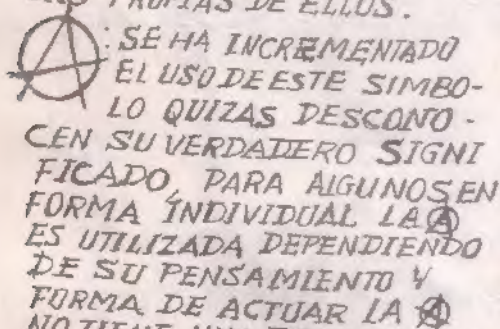 PROPIAS DE ELLOS.
Ⓐ: SE HA INCREMENTADO
EL USO DE ESTE SIMBO-
LO QUIZAS DESCONO-
CEN SU VERDADERO SIGNI
FICADO, PARA ALGUNOS EN
FORMA INDIVIDUAL LA Ⓐ
ES UTILIZADA DEPENDIENDO
DE SU PENSAMIENTO Y
FORMA DE ACTUAR LA Ⓐ
NO TIENE